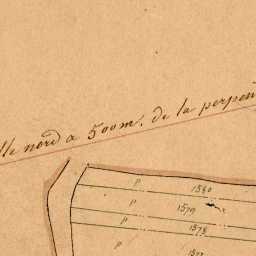 lle nord a 500m. de la perpen
P 1580
P 1579
P 1578
P